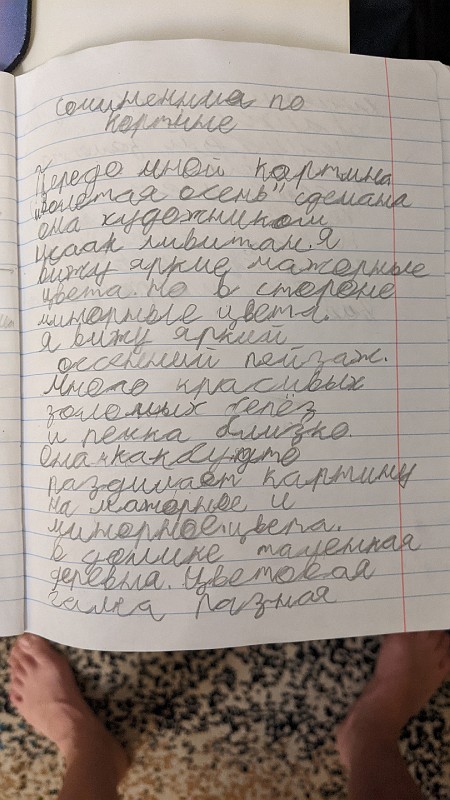 сочиненниа по
картине
Передо мной картина
"золотая осень" сделана
она художником
исаак ливитан. я
вижу яркие мажорные
цвета. но в стороне
минорные цвета.
я вижу яркий
осенний пейзаж.
много красивых
золотых берёз
и речка близко.
Она как будто
раздиляет картину
на мажорное и
минорное цвета.
в долине маленкая
деревня. Цветовая
гамма разная